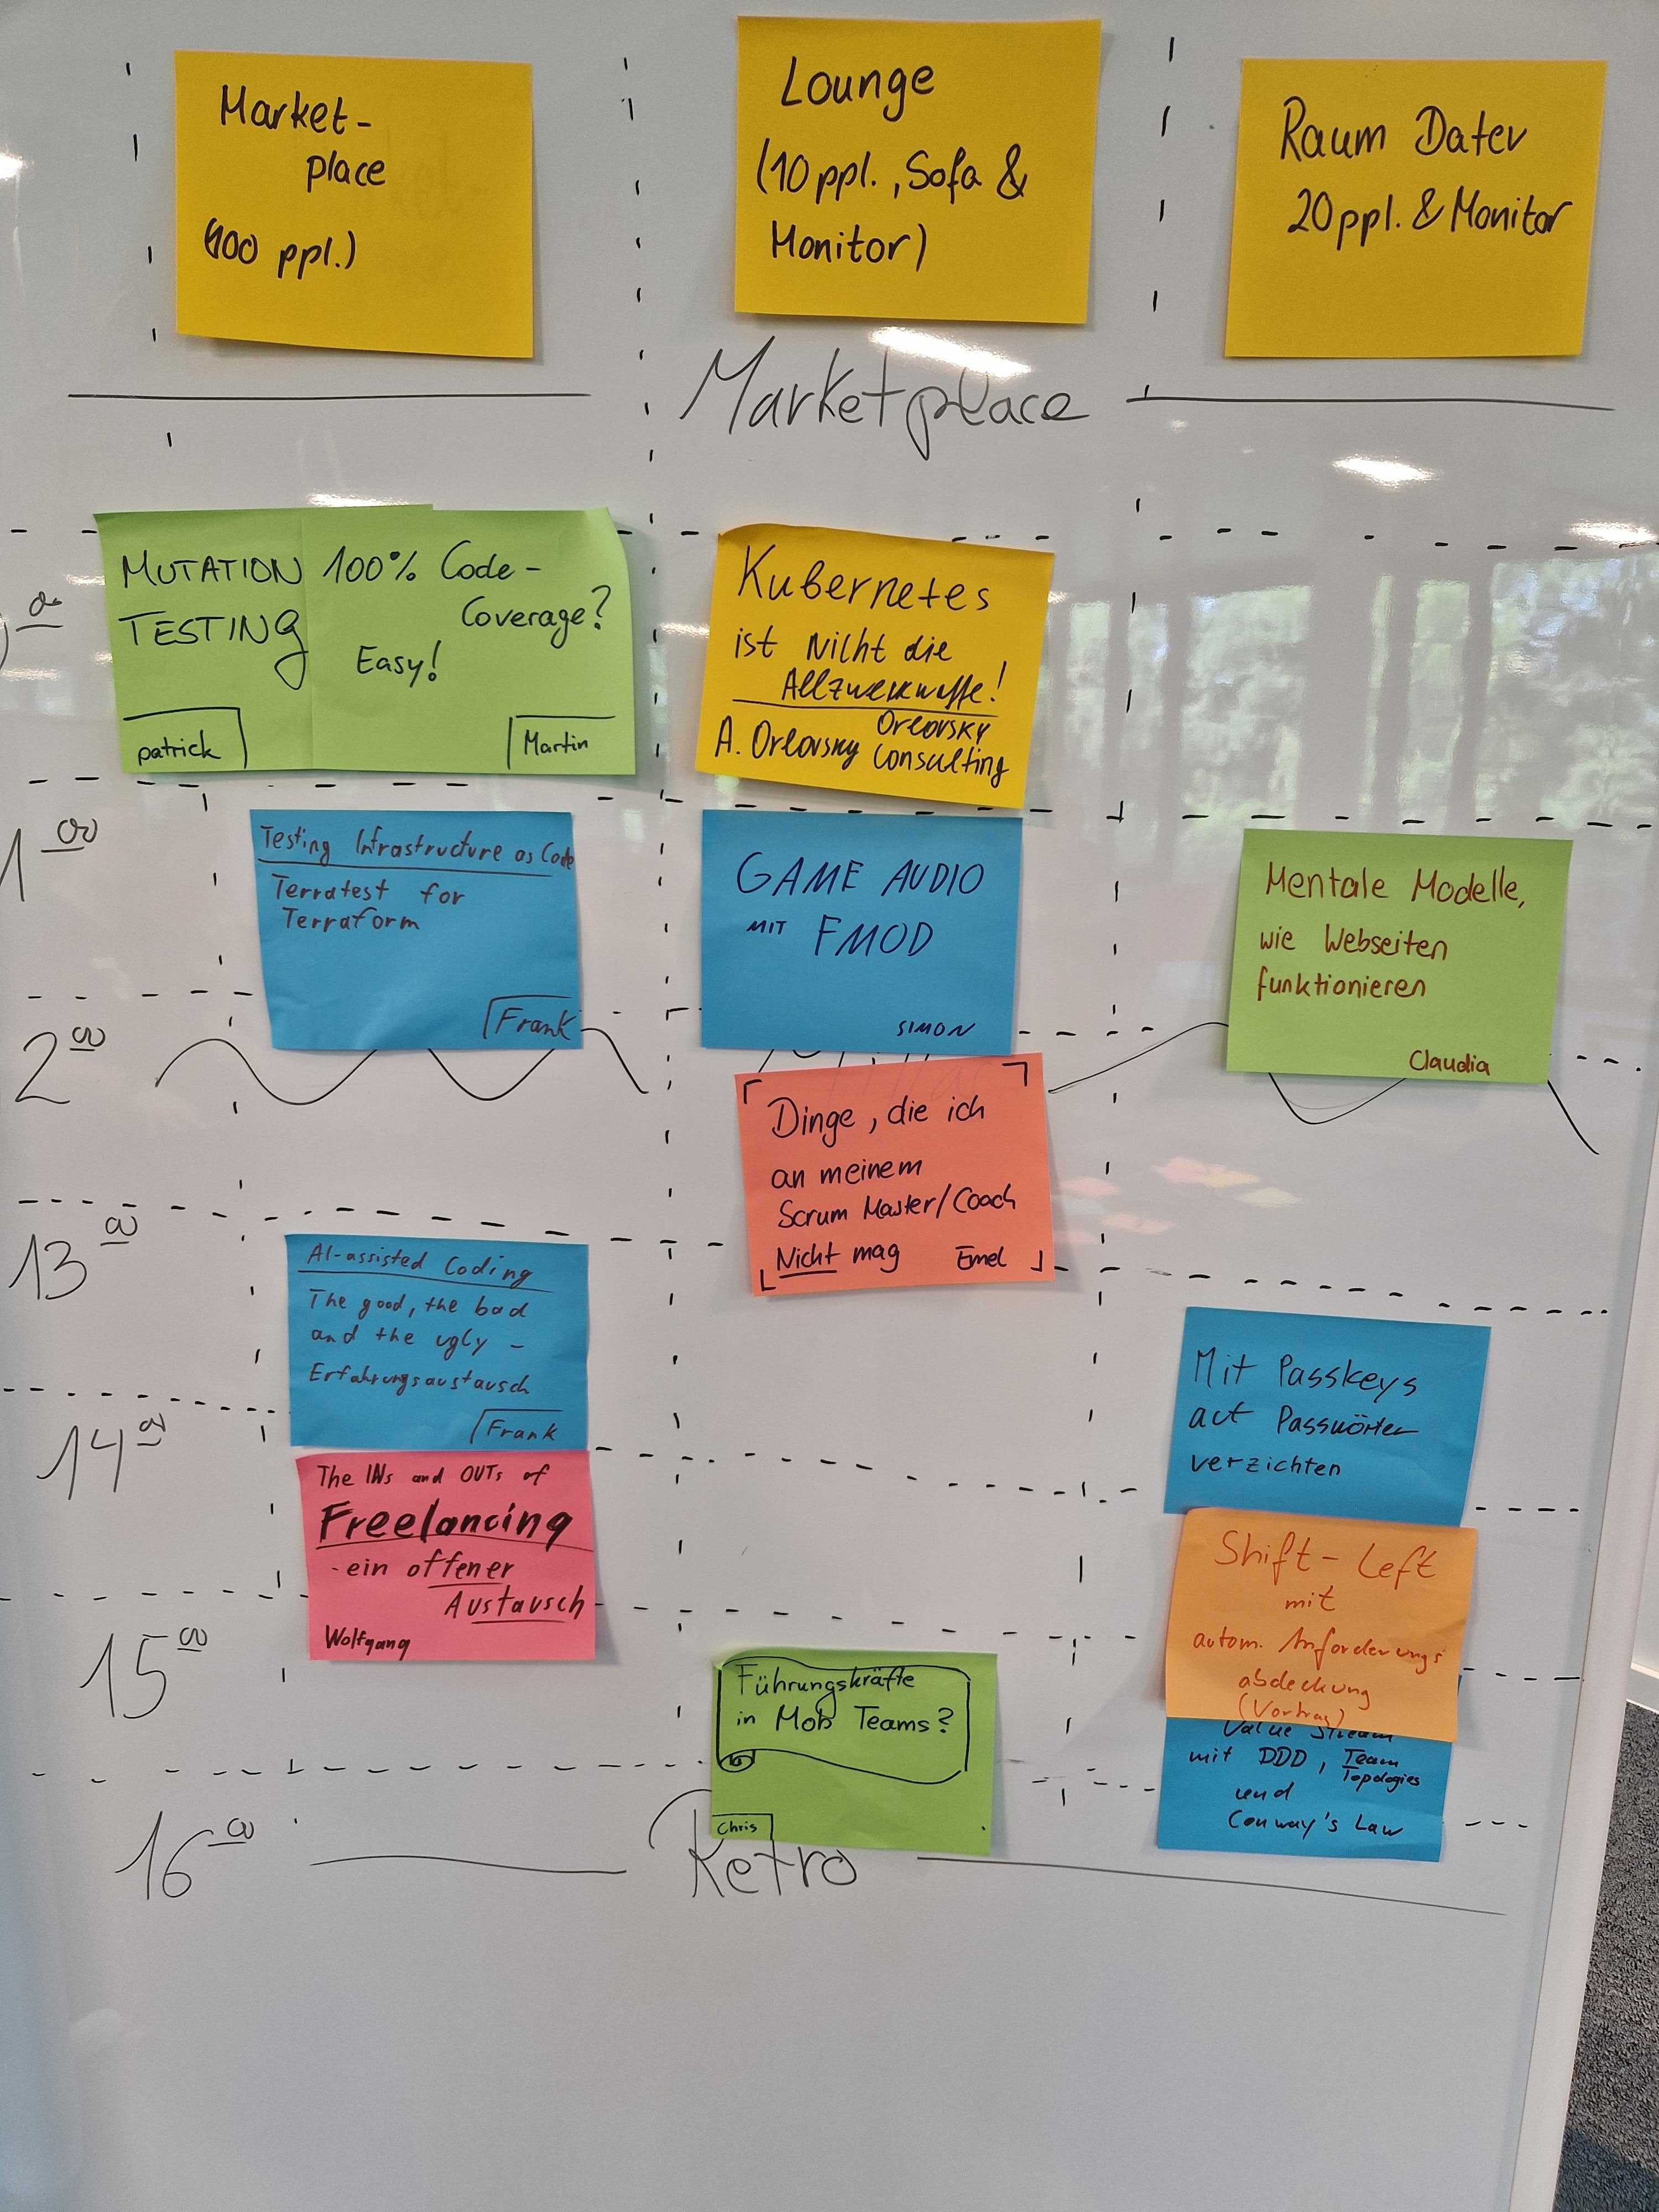 Market-
place
(100 ppl.)
Lounge
(10 ppl., Sofa &
Monitor)
Raum Datev
20 ppl. & Monitor
Marketplace
MUTATION
TESTING
patrick
100% Code-
Coverage?
Easy!
Martin
Kubernetes
ist Nicht die
Allzweckwaffe!
A. Orlovsky
Orlovsky
Consulting
1 00
Testing Infrastructure as Code
Terratest for
Terraform
Frank
GAME AUDIO
MIT FMOD
SIMON
Mentale Modelle,
wie Webseiten
funktionieren
Claudia
2 00
Dinge, die ich
an meinem
Scrum Master/Coach
Nicht mag Emel
13 00
AI-assisted Coding
The good, the bad
and the ugly -
Erfahrungsaustausch
Frank
Mit Passkeys
auf Passwörter
verzichten
14 00
The INs and OUTs of
Freelancing
- ein offener
Austausch
Wolfgang
Shift-Left
mit
autom. Anforderungs
abdeckung
(Vortrag)
15 00
Führungskräfte
in Mob Teams?
Chris
Value Stream
mit DDD, Team
Topologies
und
Conway's Law
16 00
Retro